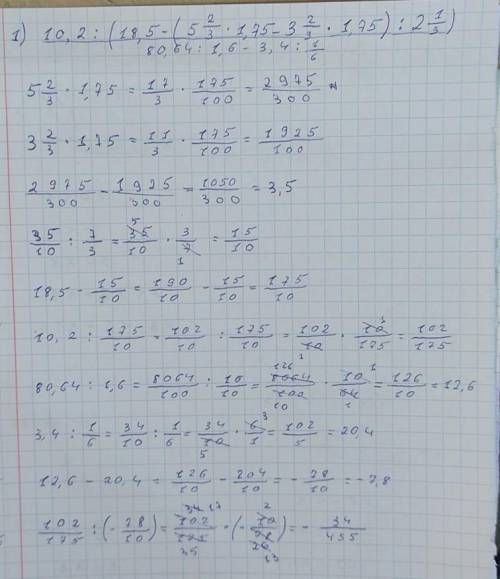 1) 10,2 : (18,5-(5 2/3 · 1,75-3 2/3 · 1,75) : 2 1/3)
80,64 : 1,6 - 3,4 : 1/6
5 2/3 · 1,75 = 17/3 · 175/100 = 2975/300
3 2/3 · 1,75 = 11/3 · 175/100 = 1925/100
2975/300 - 1925/300 = 1050/300 = 3,5
35/10 : 7/3 = 35/10 · 3/7 = 15/10
5
1
18,5 - 15/10 = 190/10 - 15/10 = 175/10
10,2 : 175/10 = 102/10 : 175/10 = 102/10 · 10/175 = 102/175
1
1
80,64 : 1,6 = 8064/100 : 10/10 = 8064/100 · 10/64 = 126/10 = 12,6
126
1
10
1
3,4 : 1/6 = 34/10 : 1/6 = 34/10 · 6/1 = 102/5 = 20,4
3
5
12,6 - 20,4 = 126/10 - 204/10 = - 78/10 = -7,8
102/175 : (- 78/10) = 102/175 · (- 10/78) = - 34/455
34 17
2
35
26
13